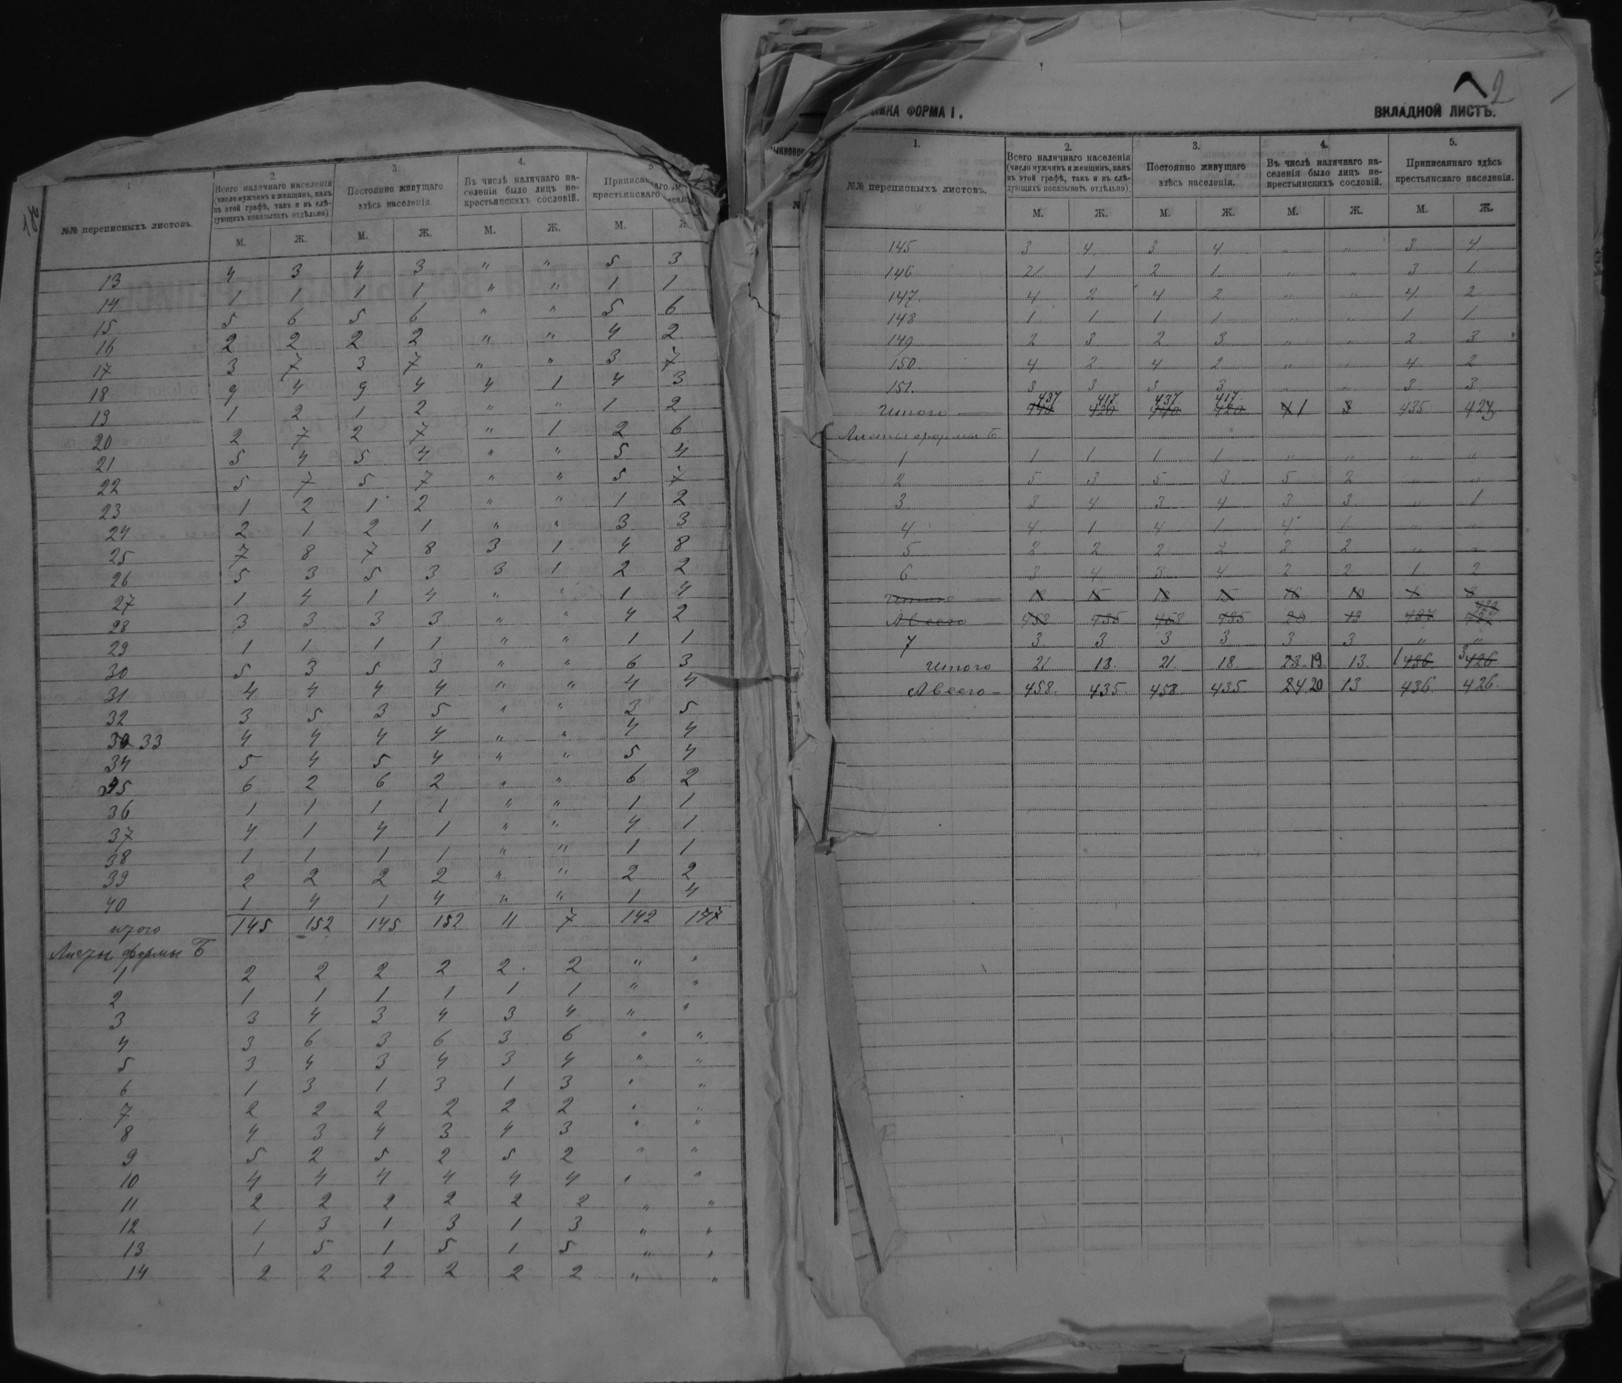 1.
№№ переписныхъ листовъ.
2.
Всего наличнаго населенія
(число мужчинъ и женщинъ, какъ
въ этой графѣ, такъ и въ слѣ-
дующихъ показывать отдѣльно)
3.
Постоянно живущаго
здѣсь населенія.
4.
Въ числѣ наличнаго на-
селенія было лицъ не-
крестьянскихъ сословій.
М. Ж. М. Ж. М. Ж. М.
13 4 3 4 3 " " 5 3
14 1 1 1 1 " " 1 1
15 5 6 5 6 " " 5 6
16 2 2 2 2 " " 4 2
17 3 7 3 7 " " 3 7
18 9 4 9 4 4 1 4 3
19 1 2 1 2 " " 1 2
20 2 7 2 7 " 1 2 6
21 5 4 5 4 " " 5 4
22 5 7 5 7 " " 5 7
23 1 2 1 2 " " 1 2
24 2 1 2 1 " " 3 3
25 7 8 7 8 3 1 4 8
26 5 3 5 3 3 1 2 2
27 1 4 1 4 " " 1 4
28 3 3 3 3 " " 4 2
29 1 1 1 1 " " 1 1
30 5 3 5 3 " " 6 3
31 4 4 4 4 " " 4 4
32 3 5 3 5 " " 3 5
33 4 4 4 4 " " 4 4
34 5 4 5 4 " " 5 4
35 6 2 6 2 " " 6 2
36 1 1 1 1 " " 1 1
37 4 1 4 1 " " 4 1
38 1 1 1 1 " " 1 1
39 2 2 2 2 " " 2 2
40 1 4 1 4 " " 1 4
итого 145 152 145 152 11 7 142 147
Листы формы Б
1 2 2 2 2 2 2 " "
2 1 1 1 1 1 1 " "
3 3 4 3 4 3 4 " "
4 3 6 3 6 3 6 " "
5 3 4 3 4 3 4 " "
6 1 3 1 3 1 3 " "
7 2 2 2 2 2 2 " "
8 4 3 4 3 4 3 " "
9 5 2 5 2 5 2 " "
10 4 4 4 4 4 4 " "
11 2 2 2 2 2 2 " "
12 1 3 1 3 1 3 " "
13 1 5 1 5 1 5 " "
14 2 2 2 2 2 2 " "
2
ФОРМА I.
ВКЛАДНОЙ ЛИСТЪ.
1.
№№ переписныхъ листовъ.
2.
Всего наличнаго населенія
(число мужчинъ и женщинъ, какъ
въ этой графѣ, такъ и въ слѣ-
дующихъ показывать отдѣльно)
3.
Постоянно живущаго
здѣсь населенія.
4.
Въ числѣ наличнаго на-
селенія было лицъ не-
крестьянскихъ сословій.
5.
Приписаннаго здѣсь
крестьянскаго населенія.
М. Ж. М. Ж. М. Ж. М. Ж.
145 3 4 3 4 " " 3 4
146 2 1 2 1 " " 3 1
147. 4 2 4 2 " " 4 2
148 1 1 1 1 " " 1 1
149 2 3 2 3 " " 2 3
150 4 2 4 2 " " 4 2
151. 3 3 3 3 " " 3 3
Итого 437 417 437 417 1 435 423
Листы формы Б
1 1 1 1 1 " " " "
2 5 3 5 3 5 2 " "
3 3 4 3 4 3 3 " 1
4 4 1 4 1 4 1 " "
5 2 2 2 2 2 2 " "
6 3 4 3 4 2 2 1 2
7 3 3 3 3 3 3 " "
Итого 21 18 21 18 19 13. 1 3
А всего 458. 435. 458 435 20 13 436 426.